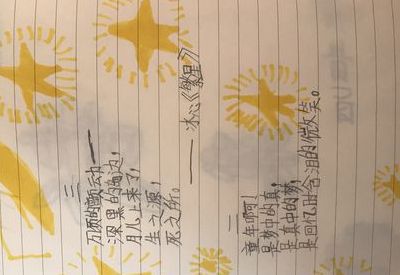 三
万顷的颤动——
深黑的岛边,
月儿上来了,
生之源,
死之所。
——冰心《繁星》
二
童年啊!
是梦中的真,
是真中的梦,
是回忆时含泪的微笑。